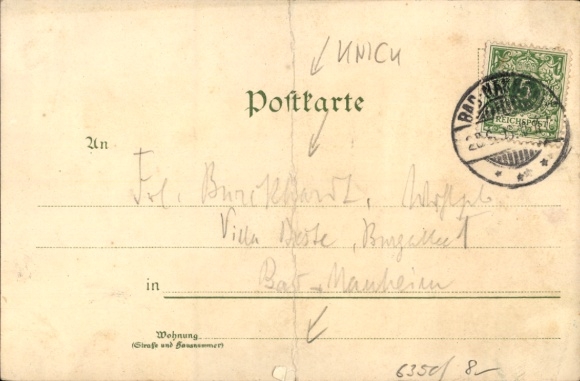 KNICK
Postkarte
5
REICHSPOST
BAD-NAU
28.5.
An
Frl. Burckhardt, Wohlgeb.
Villa Beste, Burgallee 1
in Bad-Nauheim
Wohnung
(Straße und Hausnummer)
6350/ 8-